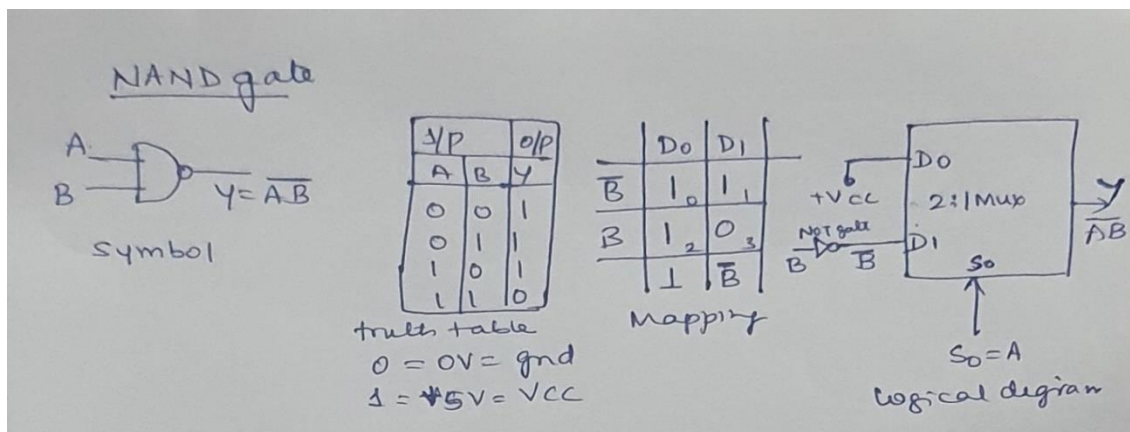 NAND gate
A
B
Y = \overline{AB}
Symbol
I/P O/P
A B Y
0 0 1
0 1 1
1 0 1
1 1 0
truth table
0 = 0V = gnd
1 = +5V = VCC
D0 D1
B̅ 1 0 1 1
B 1 2 0 3
1 B̅
Mapping
+VCC
D0
2:1 Mux
Y
\overline{AB}
NOT gate
B B̅
D1
S0
S0 = A
Logical degram